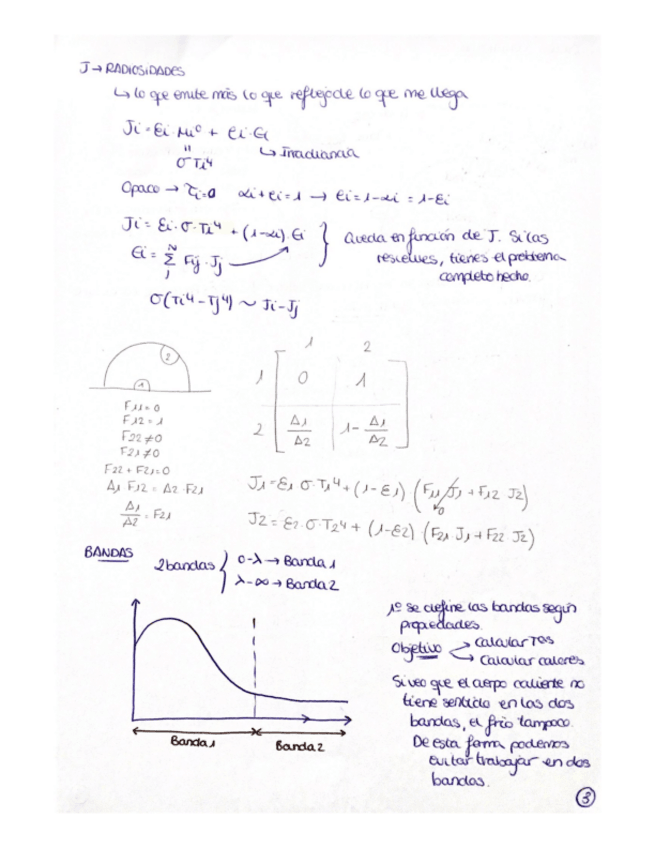 J → RADIOSIDADES
↳ lo que emite más lo que reflejo de lo que me llega
Ji = Ei · Mi⁰ + ρi · Gi
"
σ Ti⁴
↳ Irradiancia
Opaco → τi = 0   αi + ρi = 1 → ρi = 1 - αi = 1 - Ei
Ji = Ei · σ · Ti⁴ + (1 - αi) · Gi
Gi = Σ Fij · Jj
N
j
Queda en función de J. Si las
resuelves, tienes el problema
completo hecho.
σ(Ti⁴ - Tj⁴) ~ Ji - Jj
2
1
F11 = 0
F12 = 1
F22 ≠ 0
F21 ≠ 0
F22 + F21 = 0
A1 F12 = A2 · F21
A1/A2 = F21
1 2
1 0 1
2 A1/A2 1 - A1/A2
J1 = E1 σ · T1⁴ + (1 - E1) (F11 J1 + F12 J2)
0
J2 = E2 · σ · T2⁴ + (1 - E2) (F21 · J1 + F22 · J2)
BANDAS
2 bandas
0 - λ → Banda 1
λ - ∞ → Banda 2
Banda 1
Banda 2
1º se define las bandas según
propiedades.
Objetivo
Calcular TOS
Calcular calores
Si veo que el cuerpo caliente no
tiene sentido en las dos
bandas, el frío tampoco.
De esta forma podemos
evitar trabajar en dos
bandas.
3